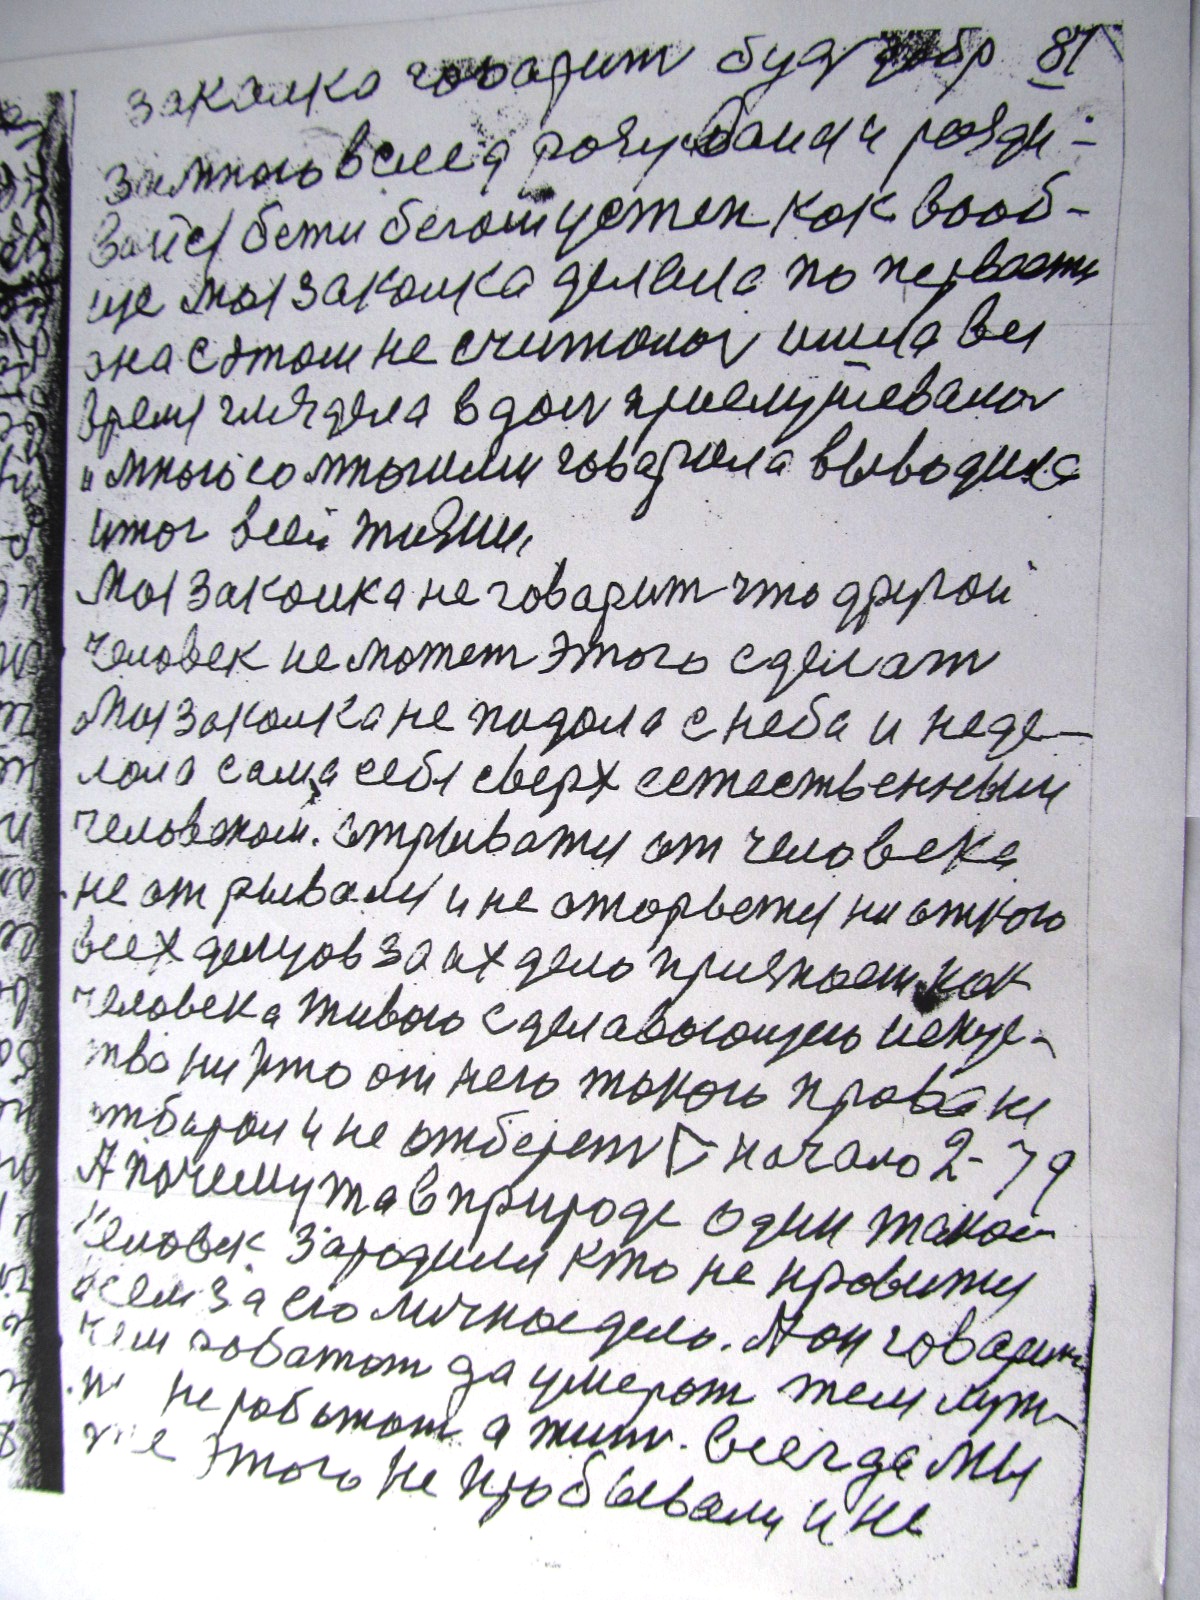 закалка говарит буд добр 81
за много всего разу и разди-
вайся бежи бегом как вооб-
ще моя закалка делала по первости
она с этом не считалась шла вся
время глядела в дом прислушевалась
и много со многими говарила выводила
итог всей жизни,
Моя закалка не говарит что другой
человек не может этого сделат
Моя закалка не подола с неба и не де-
лала сама себя сверх естественным
человеком. отрывати от человека
не отрывали и не оторвети ни откого
всех делцов за их дело признает как
человека живого сделавающего искус-
тва никто от него токого права не
отбирол и не отберет начало 2-79
А почему жа в природе один такой
человек зародился кто не нровитя
всем за его личное дело. А он говарит
чем работат да умерат тем луж-
не работат а жит. всегда мы
этого не пробывали и не